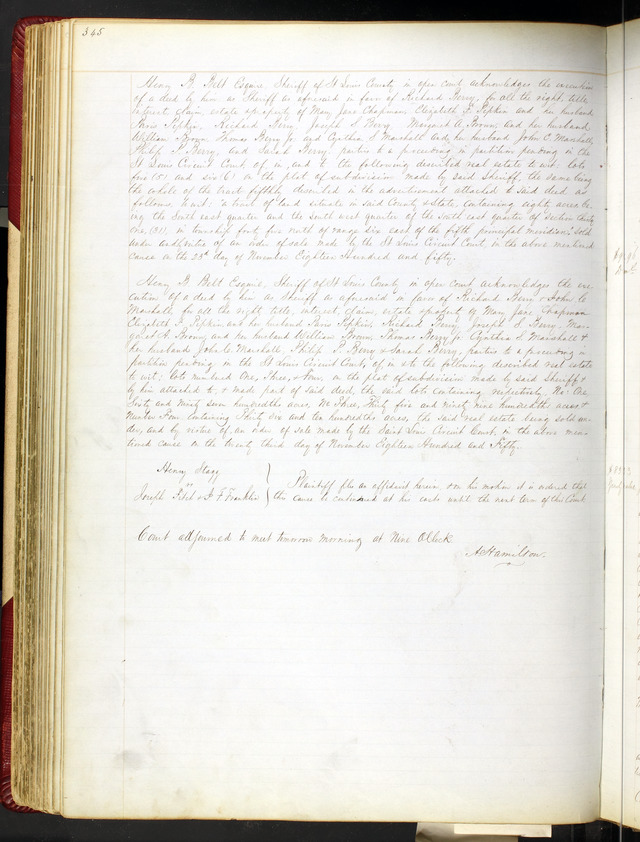 345
Henry B. Belt Esquire, Sheriff of St Louis County, in open court acknowledges the execution
of a deed by him as Sheriff as aforesaid in favor of Richard Berry, for all the right, title,
interest, claim, estate & property of Mary Jane Chapman, Elizabeth F. Pipkin and her husband
Pipkin, Richard Berry, Joseph S. Berry, Margaret A. Brown, and her husband
William Brown, Thomas Berry Jr. and Cynthia L. Marshall and her husband John C. Marshall,
Philip P. Berry, and Sarah Berry, parties to a proceeding in partition pending in the
St Louis Circuit Court, of in, and to the following described real estate to wit: Lots
five (5) and six (6) on the plot of subdivision made by said Sheriff, the same being
the whole of the tract fifthly described in the advertisement attached to said deed as
follows, to wit: "a tract of land situate in said County & State containing eighty acres be-
ing the South east quarter and the South west quarter of the South east quarter of Section thirty
one (31), in township forty five north of range six east of the fifth principal meridian," sold
under authorities of an order of sale made by the St Louis Circuit Court in the above numbered
cause on the 23d day of November Eighteen Hundred and fifty.
Henry B. Belt Esquire, Sheriff of St Louis County in open court acknowledges the exe-
cution of a deed by him as Sheriff as aforesaid in favor of Richard Berry & John C.
Marshall, for all the right title, interest, claim, estate & property of Mary Jane Chapman
Elizabeth F. Pipkin and her husband Pipkin, Richard Berry, Joseph S. Berry, Mar-
garet A. Brown, and her husband William Brown, Thomas Berry Jr. Cynthia L. Marshall &
her husband John C. Marshall, Philip P. Berry & Sarah Berry, parties to a proceeding in
partition pending in the St Louis Circuit Court, of in & to the following described real estate
to wit: Lots numbered One, Three, & Four, on the plot of subdivision made by said Sheriff &
by him attached to & made part of said deed, the said lots containing respectively No: One
Sixty and Ninety seven hundredths acres, No Three, Thirty five and ninety nine hundredths acres &
Number Four Containing Thirty six and ten hundredths acres, the said real estate being sold un-
der, and by virtue of an order of Sale made by the Saint Louis Circuit Court, in the above men-
tioned cause on the twenty third day of November Eighteen Hundred and Fifty.
Henry Stagg
vs
Joseph & F. F. Franklin
Plaintiff files an affidavit herein, & on his motion it is ordered that
this cause be continued at his costs until the next term of this Court
Court adjourned to meet tomorrow morning at Nine O'Clock
A Hamilton.